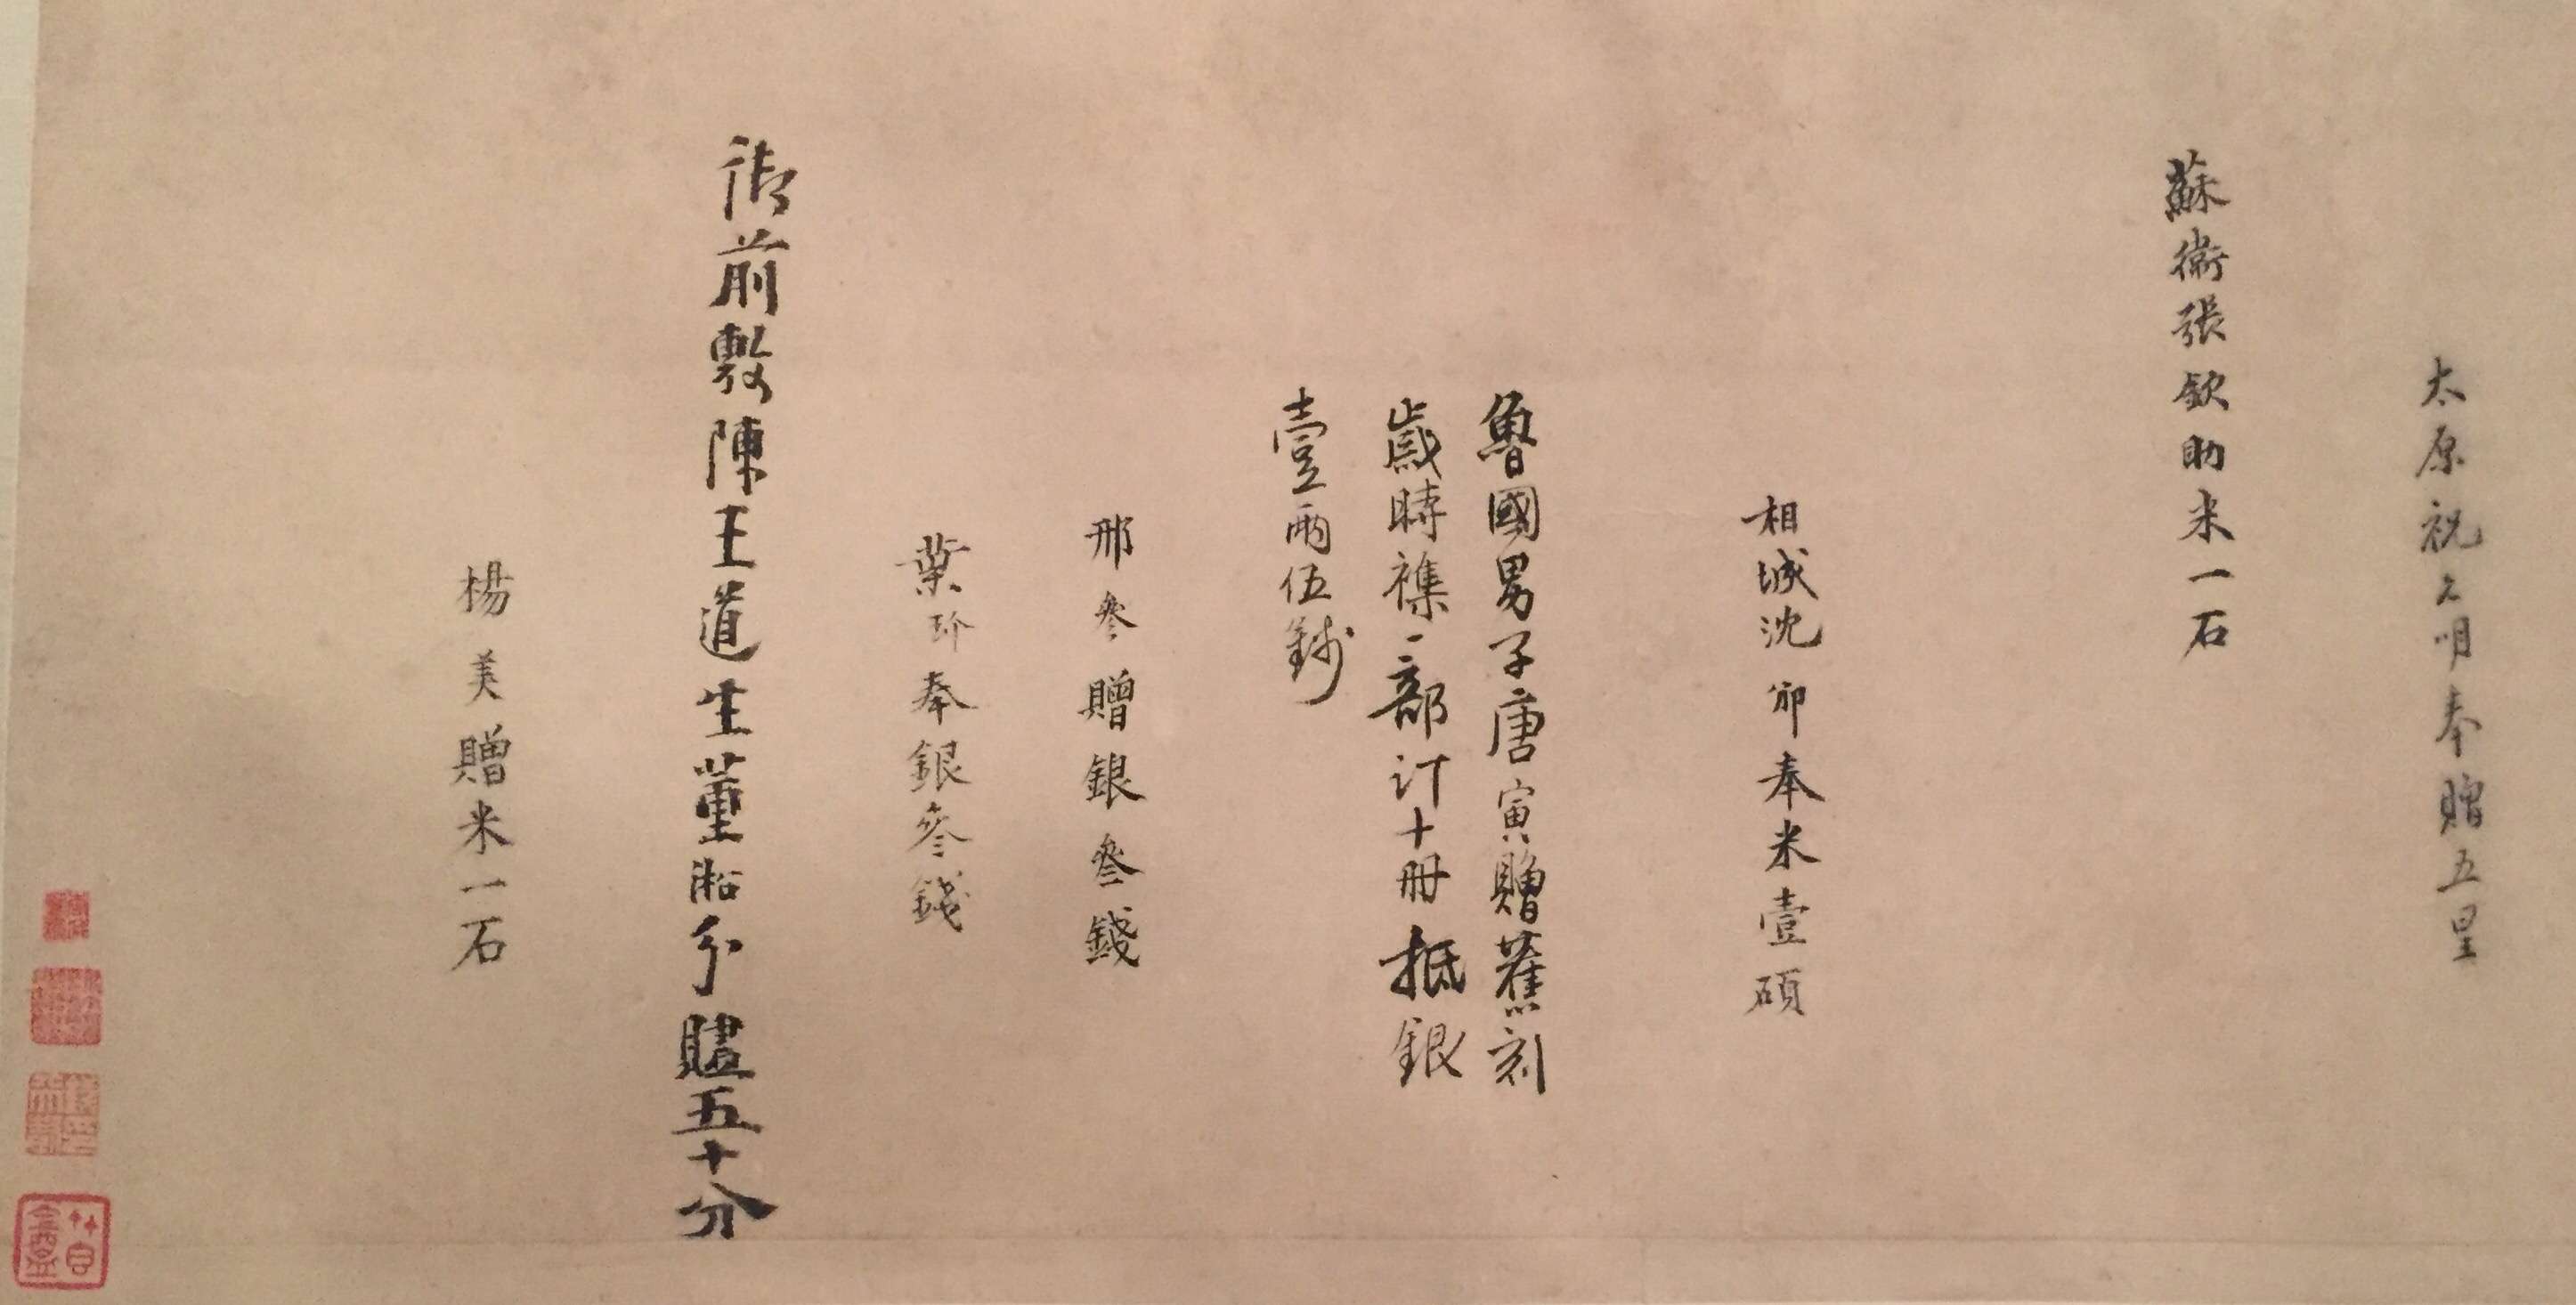 太原祝允明奉贈五星
蘇衛張欽助米一石
相城沈邠奉米壹碩
魯國男子唐寅贈舊刻
歲時襍一部計十冊抵銀
壹兩伍錢
邢參贈銀叁錢
葉玠奉銀叁錢
御前敷陳王道生董淞分贐五十分
楊美贈米一石